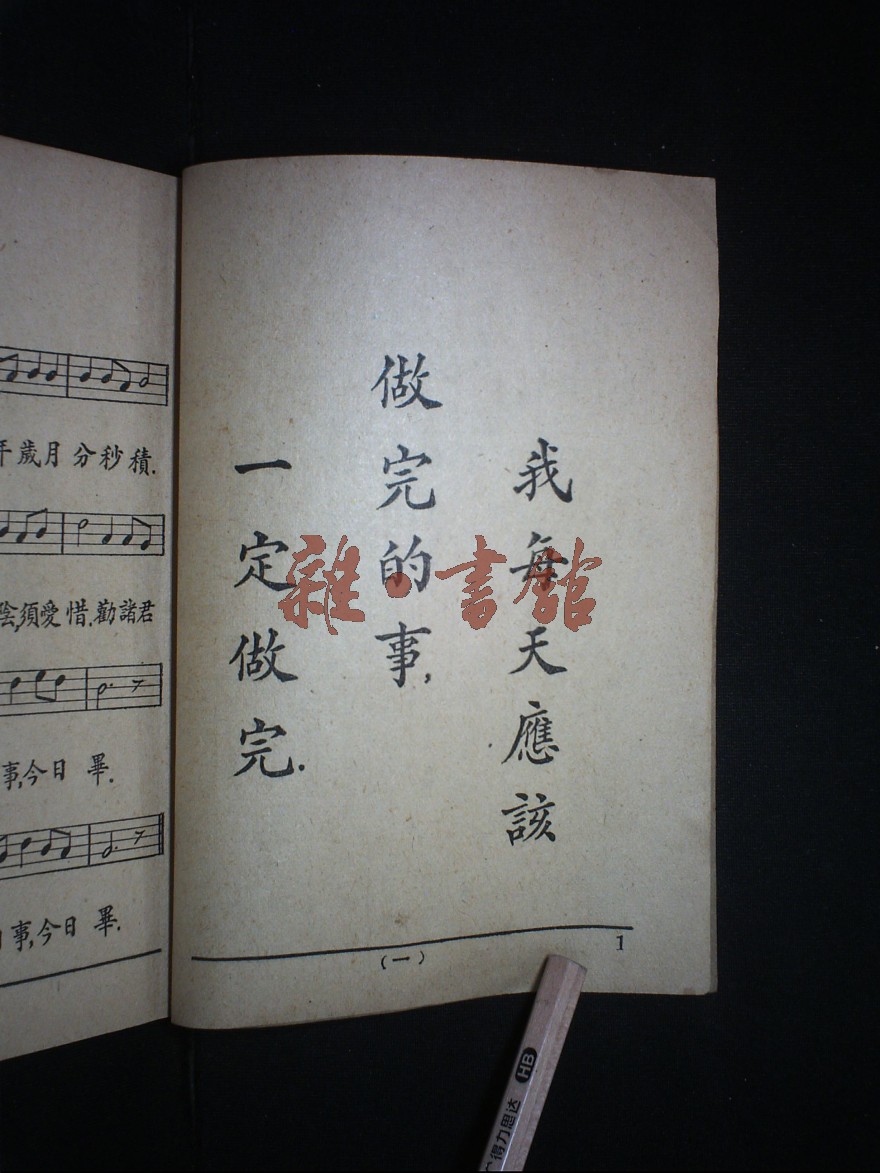 我每天應該
做完的事,
一定做完.
(一)
1
年歲月分秒積.
陰,須愛惜.勸諸君
事,今日畢.
事,今日畢.
雜·書館
HB
得力思达